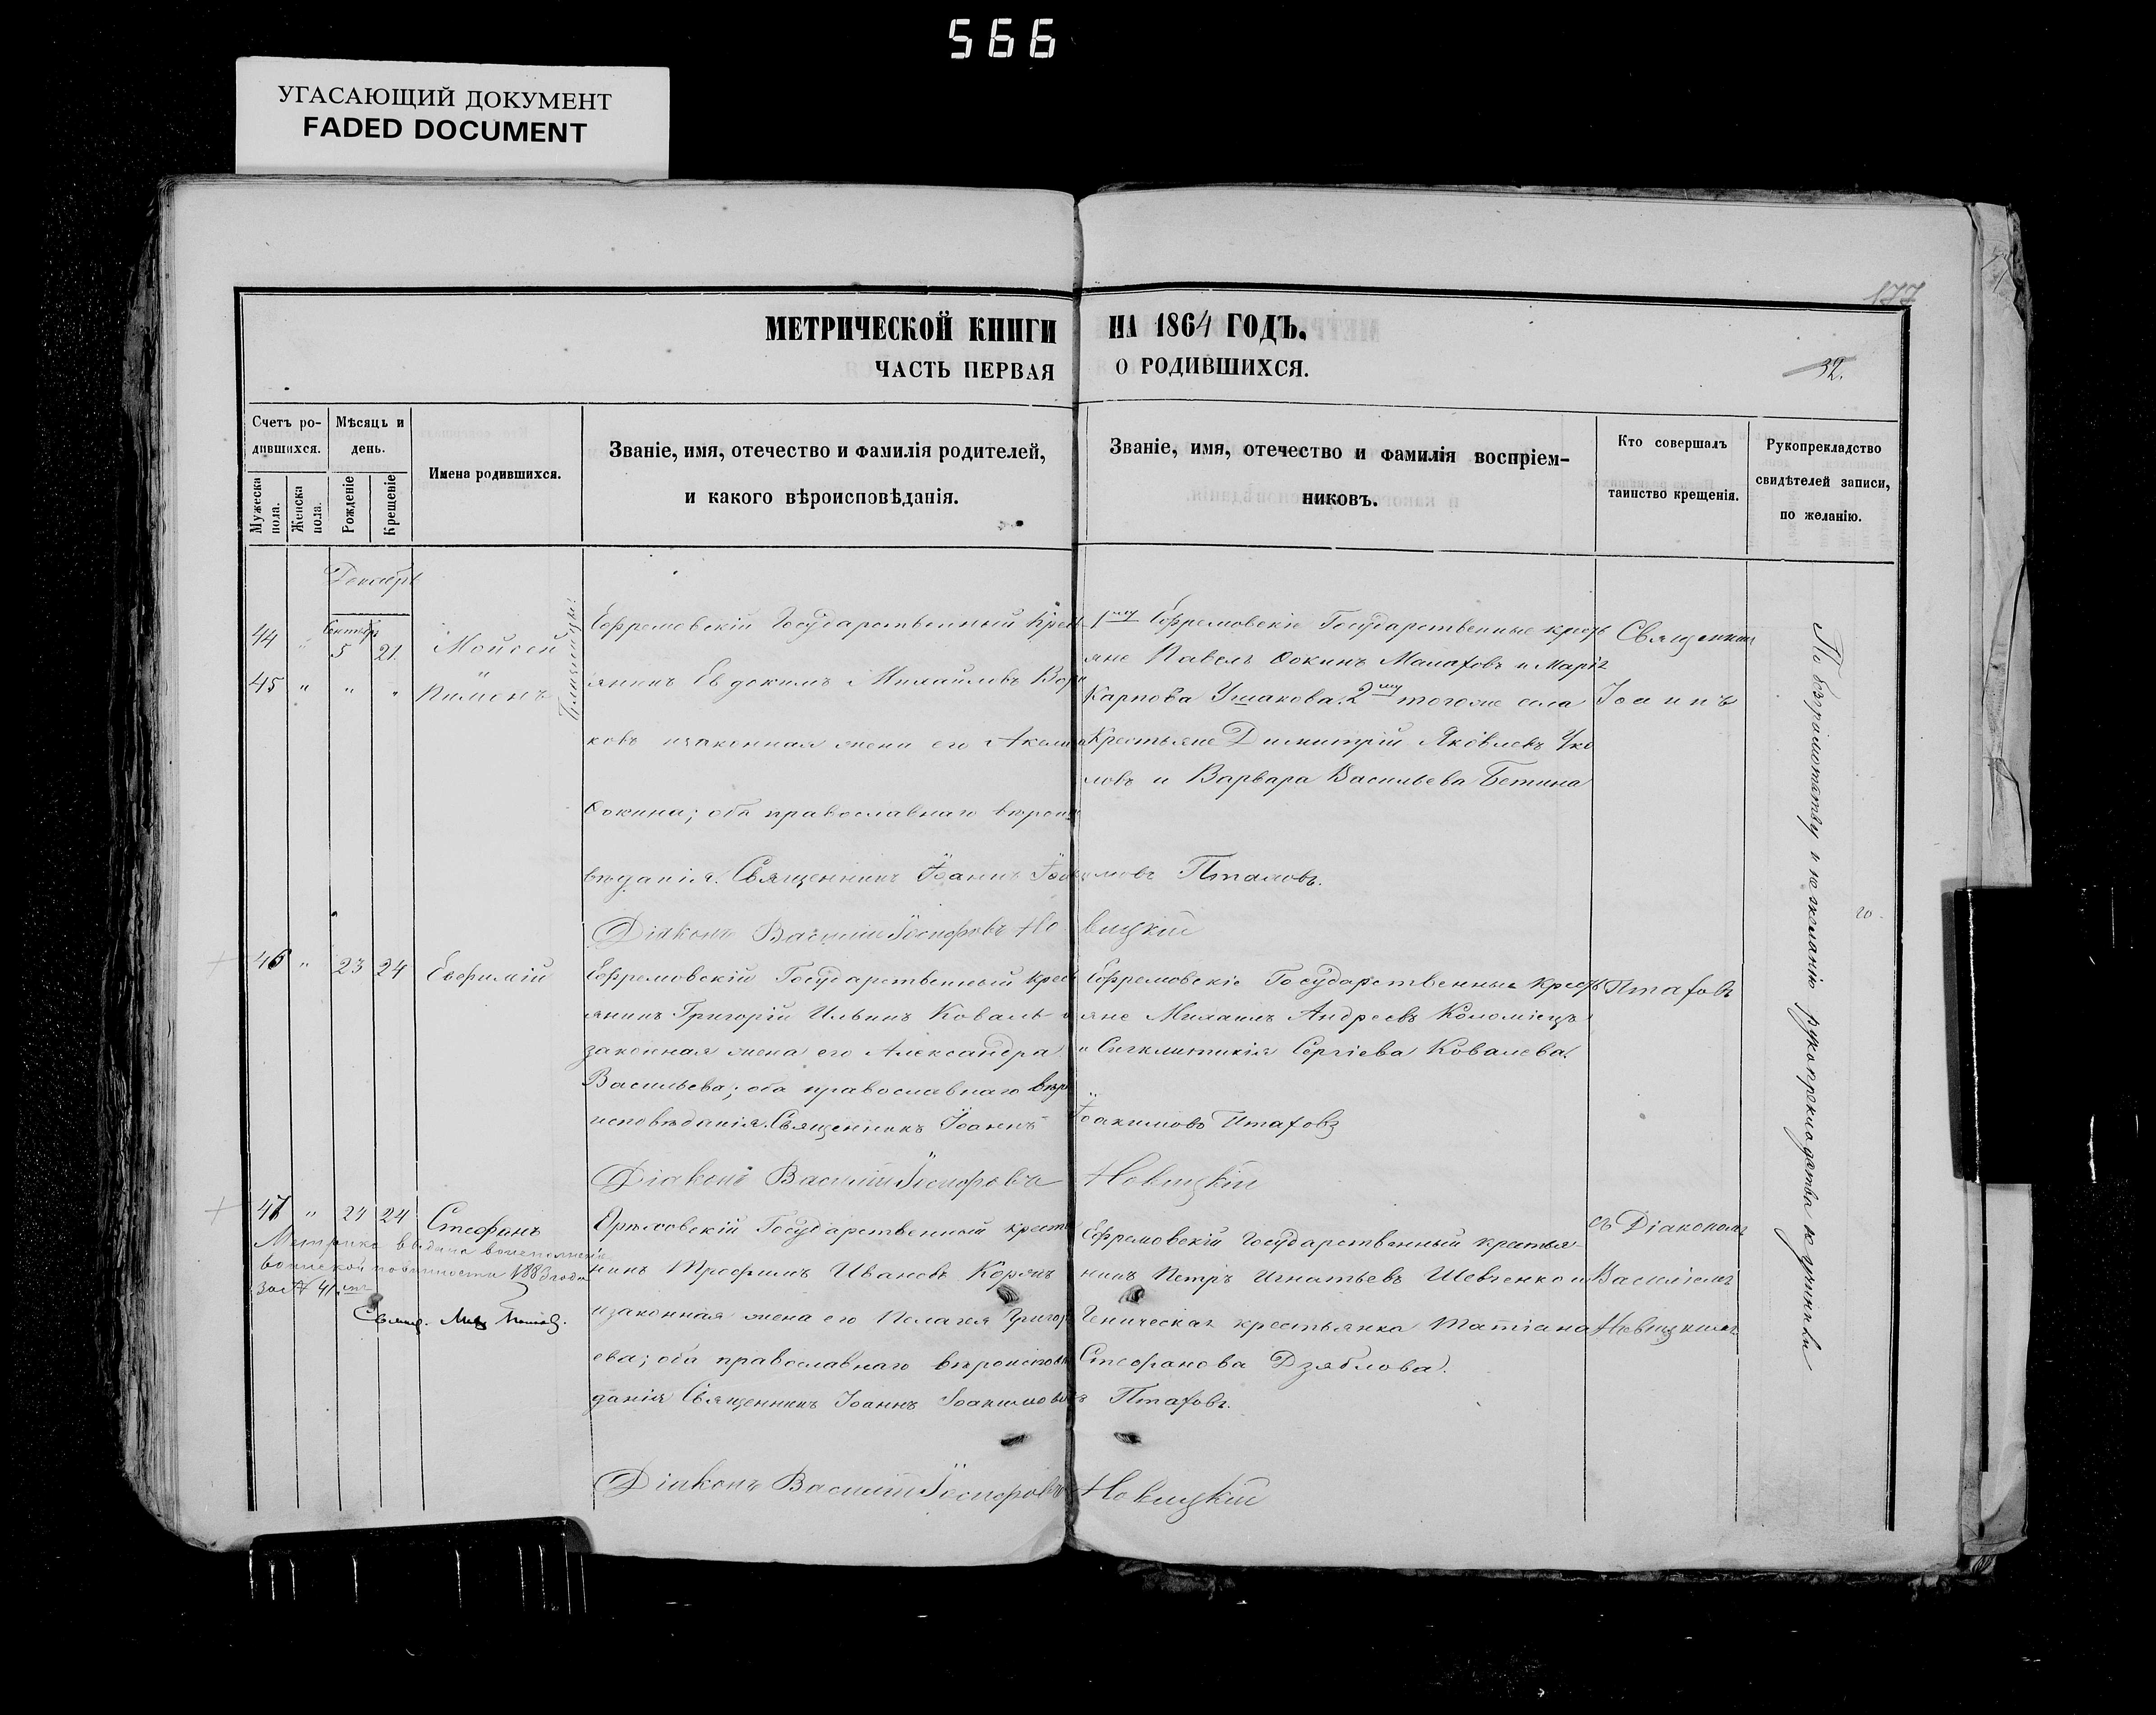 566
УГАСАЮЩИЙ ДОКУМЕНТ
FADED DOCUMENT
177
МЕТРИЧЕСКОЙ КНИГИ НА 1864 ГОДЪ.
ЧАСТЬ ПЕРВАЯ О РОДИВШИХСЯ.
32.
Счетъ родившихся.
Мужеска пола.
Женска пола.
Мѣсяцъ и день.
Рожденіе
Крещеніе
Имена родившихся.
Званіе, имя, отечество и фамилія родителей,
и какого вѣроисповѣданія.
Званіе, имя, отечество и фамилія воспріем-
никовъ.
Кто совершалъ
таинство крещенія.
Рукопрекладство
свидѣтелей записи,
по желанію.
Декабрь
44 " Сентябр 5 21 Мойсей
45 " " " Пименъ
Близнецы
Ефремовскій Государственный крест
янинъ Евдокимъ Михайловъ
ковъ и законная жена его
Ѳокина; оба православнаго вѣроиспо
вѣданія. Священникъ Іоаннъ Іоакимовъ Птаховъ.
Діаконъ Василій Іосифовъ Новицкій
1му Ефремовскіе Государственные кресть
яне Павелъ Ѳокинъ Малаховъ и Марія
Карпова Ушакова. 2му тогоже села
Крестьяне Димитрій Яковлевъ
ловъ и Варвара Васильева Бетина
Священникъ
Іоаннъ
Птаховъ
съ Діакономъ
Василіемъ
Новицкимъ
46 " 23 24 Евфимій
Ефремовскій Государственный крест
янинъ Григорій Ильинъ Коваль и
законная жена его Александра
Васильева; оба православнаго вѣро
исповѣданія. Священникъ Іоаннъ Іоакимовъ Птаховъ
Діаконъ Василій Іосифовъ Новицкій
Ефремовскіе Государственные кресть
яне Михаилъ Андреевъ Коломіецъ
и Сигклитикія Сергіева Ковалева.
47 " 24 24 Стефанъ
Метрика выдана
воинской повинности 1883 года
за № 41
Орѣховскій Государственный кресть
нинъ Трофимъ Ивановъ
и законная жена его Пелагея Григорь
ева; оба православнаго вѣроисповѣ
данія Священникъ Іоаннъ Іоакимовъ Птаховъ.
Діаконъ Василій Іосифовъ Новицкій
Ефремовскій Государственный крестья
нинъ Петръ Игнатьевъ Шевченко и
Геническая крестьянка Татіана
Стефанова Дзяблова.
По безграмотству и не желанію рукопрекладства не учинили